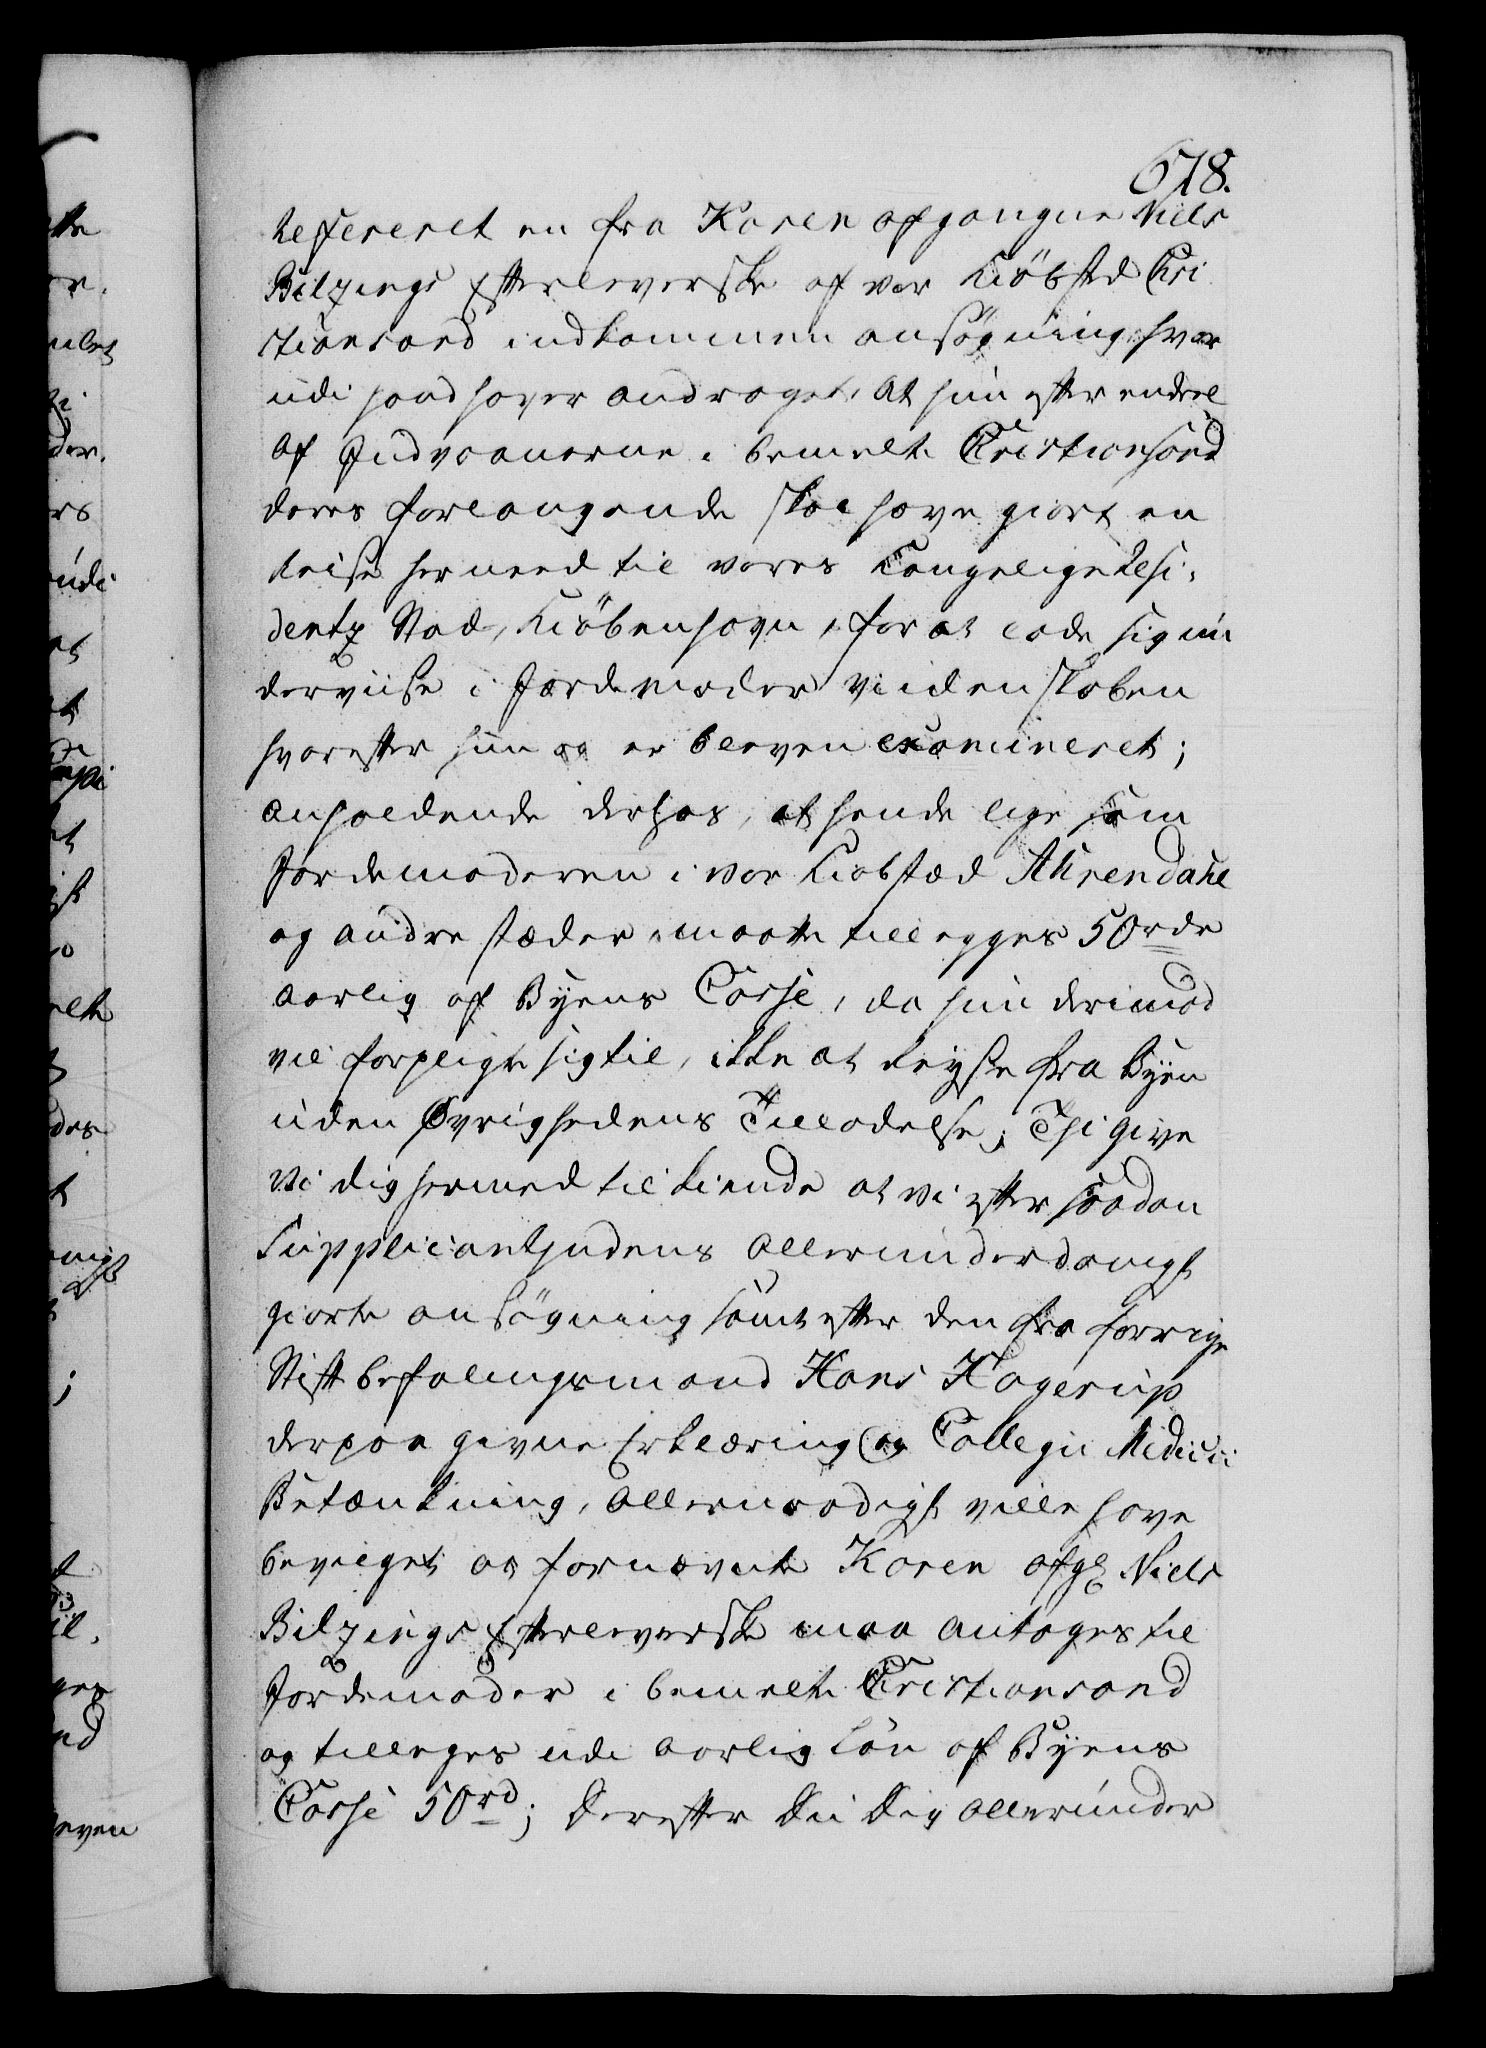 678.
Refereret en fra Karen afgangne Niels
Bilzings Efterleverske af vor Kiöbsted Chri
stiansand indkommen ansøgning, hvor
udi hand haver andraget, at hun efter endeel
af Indvaanerne i bemelte Christiansand
deres forlangende skal have giort en
Reise her need til vores Kongelige Resi-
dentz Stad, Kiöbenhavn, for at lade sig un
derviise i Jordemoder Viidenskaben
hvorefter hun og er bleven examineret;
anholdende derhos, at hende lige som
Jordemoderen i vor Kiobstæd Ahrendahl
og andre stæder, maatte tillegges 50 rdr
aarlig af Byens Casse, da hun derimod
vil forpligte sig til, ikke at Reyse fra Byen
uden Øvrighedens Tilladelse; Thi give
Vi dig hermed til kiende at vi efter saadan
Supplicantindens allerunderdanigst
giorte ansögning samt efter den fra forrige
Stiftbefalingsmand Hans Hagerup
derpaa givne Erklæring og Collegii Medici
Betænkning, allernaadigst ville have
bevilget at fornævnte Karen afg: Niels
Bilzings Efterleverske maa antages til
Jordemoder i bemelte Christiansand
og tilleges udi aarlig Lön af Byens
Casse 50 rd; Derefter Du Dig allerunder